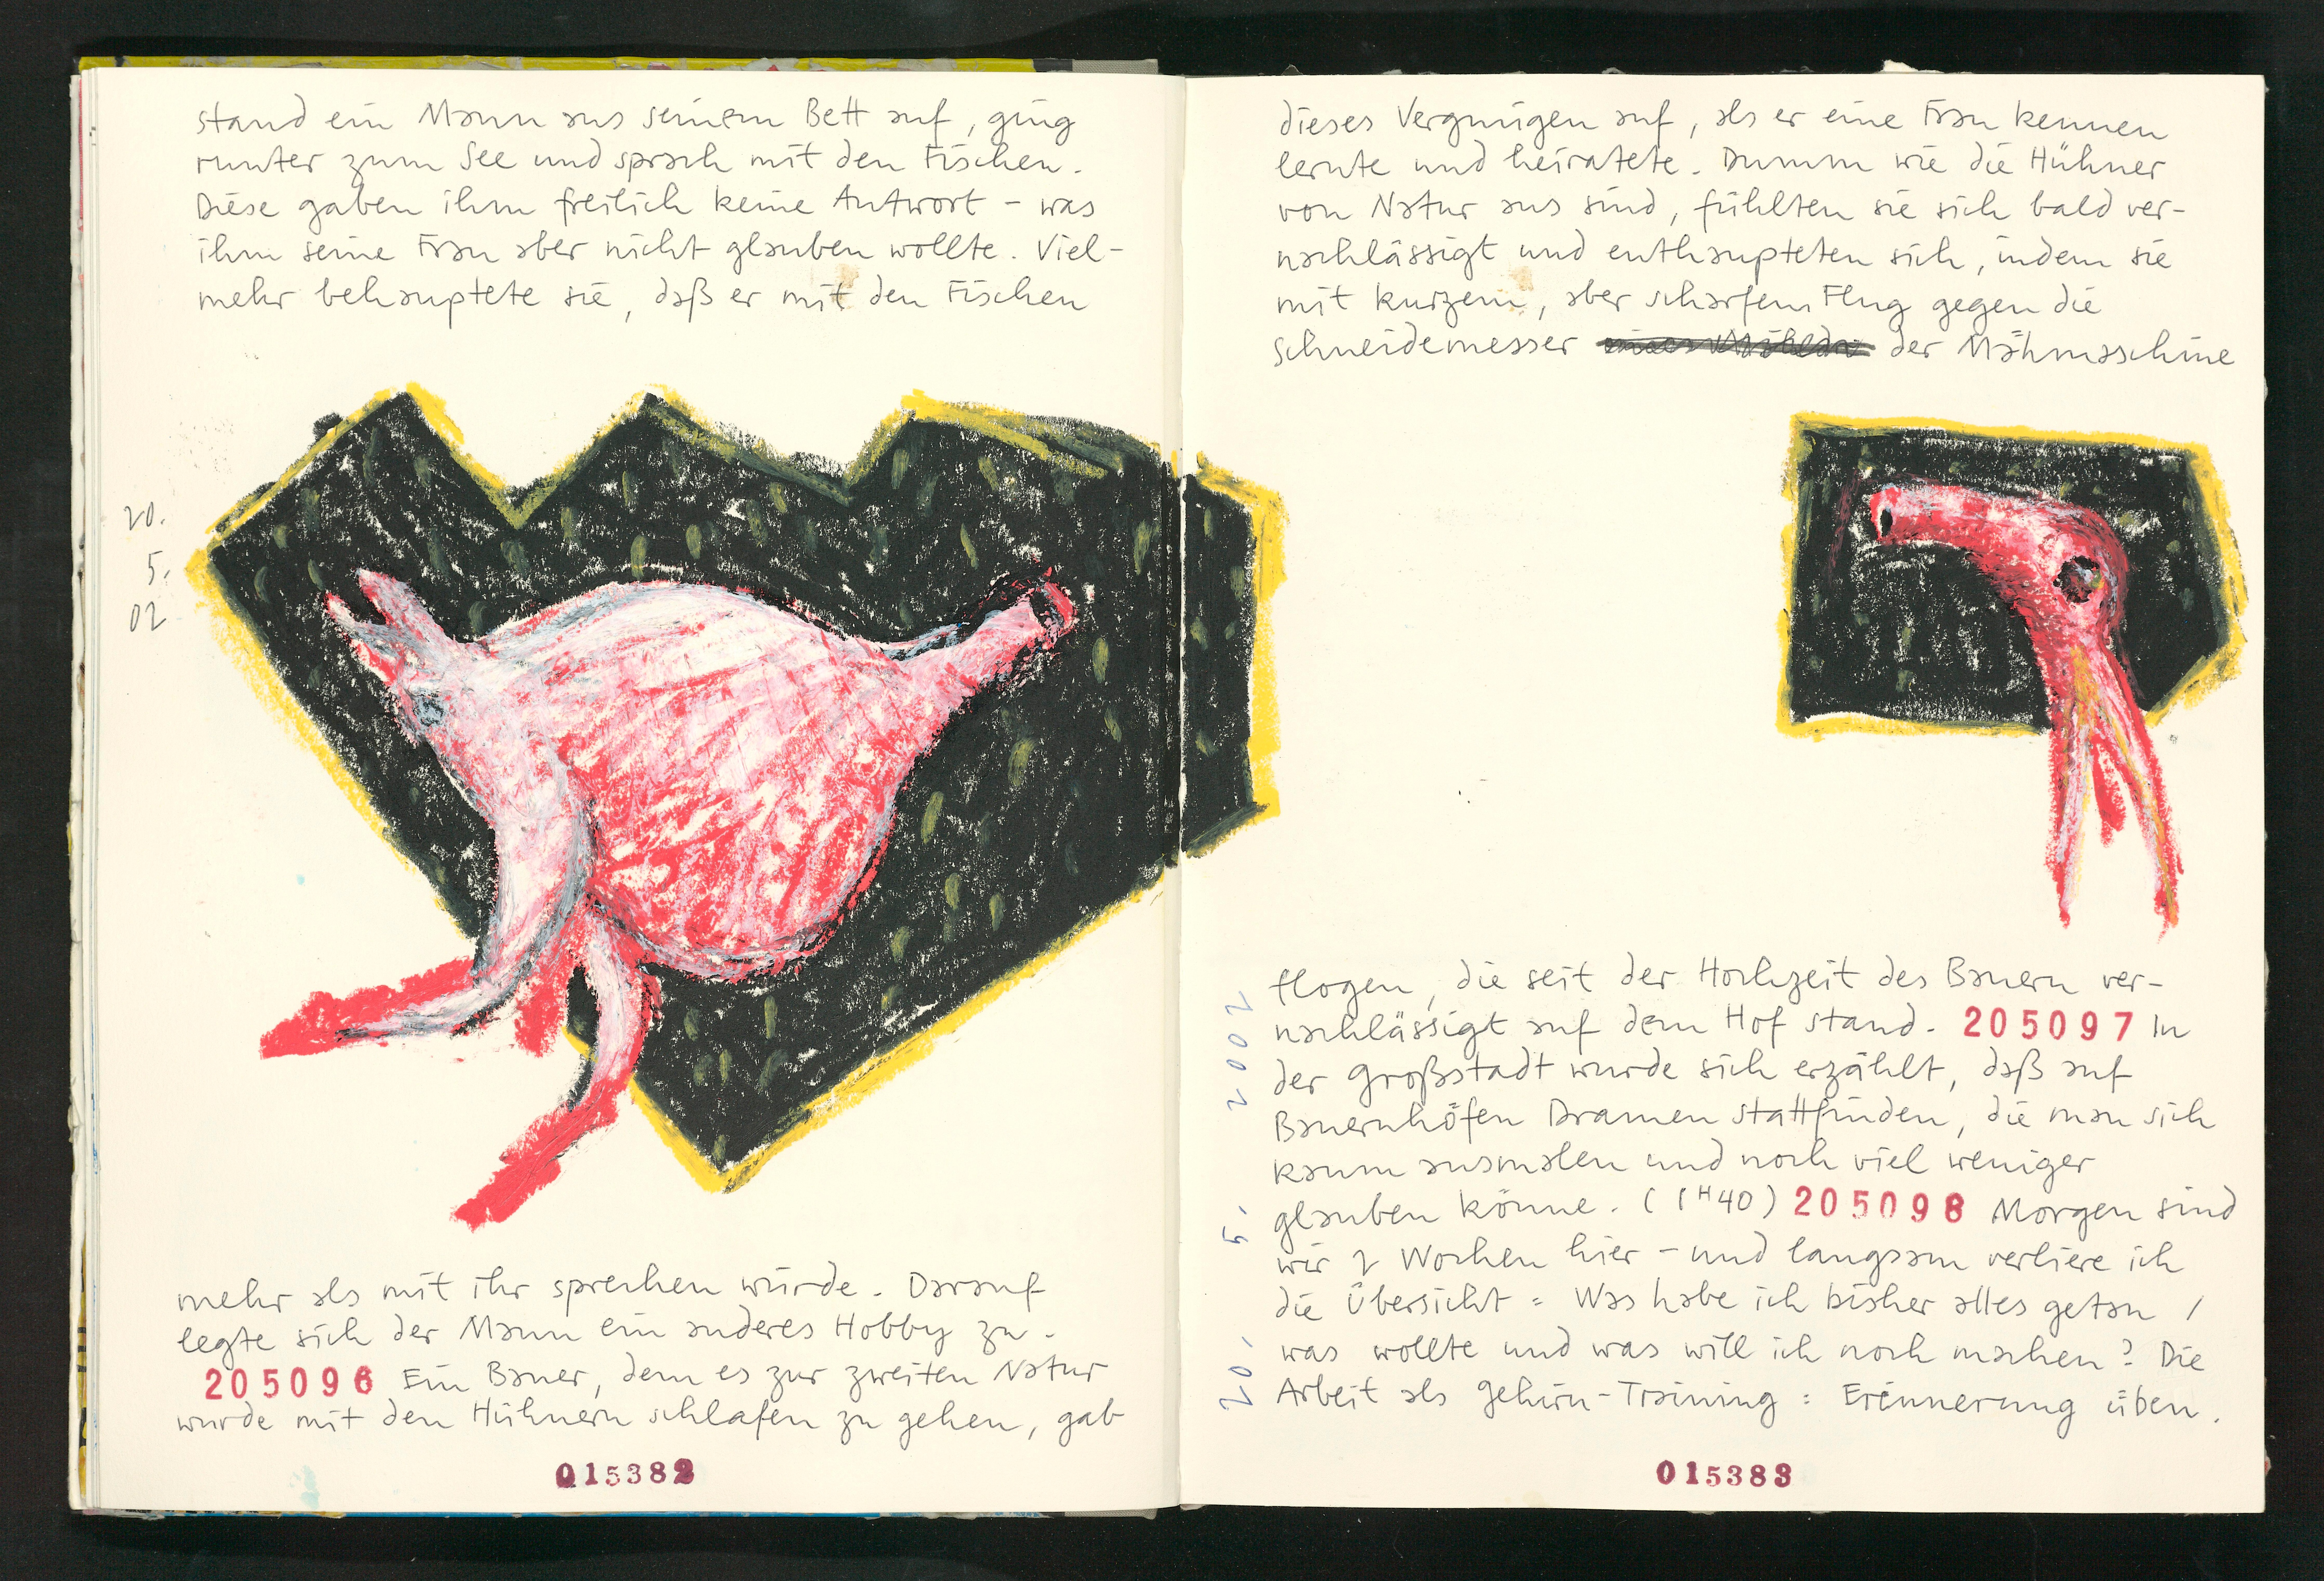 stand ein Mann aus seinem Bett auf, ging
runter zum See und sprach mit den Fischen.
Diese gaben ihm freilich keine Antwort – was
ihm seine Frau aber nicht glauben wollte. Viel-
mehr behauptete sie, daß er mit den Fischen
20.
5.
02
mehr als mit ihr sprechen würde. Darauf
legte sich der Mann ein anderes Hobby zu.
205096 Ein Bauer, dem es zur zweiten Natur
wurde mit den Hühnern schlafen zu gehen, gab
015382
dieses Vergnügen auf, als er eine Frau kennen
lernte und heiratete. Dumm wie die Hühner
von Natur aus sind, fühlten sie sich bald ver-
nachlässigt und enthaupteten sich, indem sie
mit kurzem, aber scharfem Flug gegen die
Schneidemesser der Mähmaschine
flogen, die seit der Hochzeit des Bauern ver-
nachlässigt auf dem Hof stand. 205097 In
der Großstadt wurde sich erzählt, daß auf
Bauernhöfen Dramen stattfinden, die man sich
kaum ausmalen und noch viel weniger
glauben könne. (1H40) 205098 Morgen sind
wir 2 Wochen hier – und langsam verliere ich
die Übersicht: Was habe ich bisher alles getan /
was wollte und was will ich noch machen? Die
Arbeit als Gehirn-Training: Erinnerung üben.
20. 5. 2002
015383